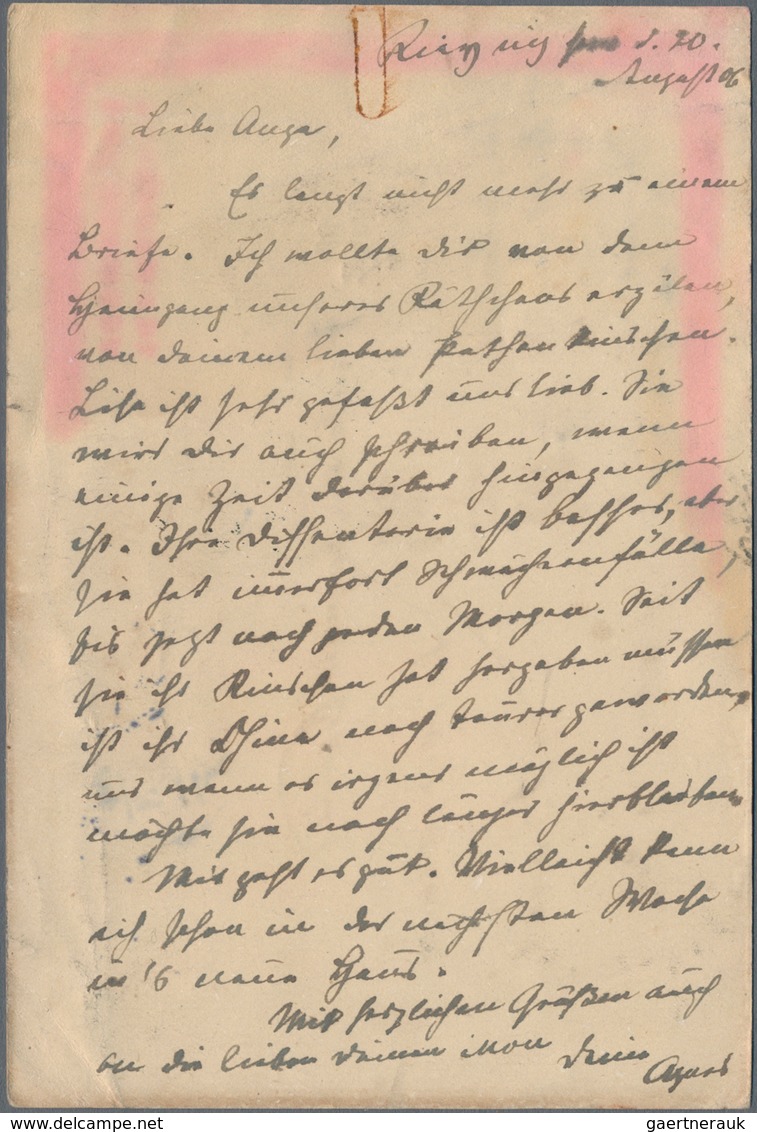 d. 20.
August 06
Liebe Anga,
Es langt nicht mehr zu einem
Briefe. Ich wollte Dir von dem
Heimgang unseres Käthchens erzälen,
von deinem lieben Pathenkindchen.
Lisa ist sehr gefaßt und lieb. Sie
wird Dir auch schreiben, wenn
einige Zeit darüber hingegangen
ist. Ihre Dissenterie ist besser, aber
sie hat immerfort Schwächeanfälle,
bis jetzt noch jeden Morgen. Seit
sie ihr Kindchen hat hergeben müssen
ist ihr China noch teurer geworden,
und wenn es irgend möglich ist
möchte sie noch länger hierbleiben.
Mir geht es gut. Vielleicht kann
ich schon in der nächsten Woche
in's neue Haus.
Mit herzlichen Grüßen auch
an die lieben Deinen
Deine
Agnes
gaertnerauk